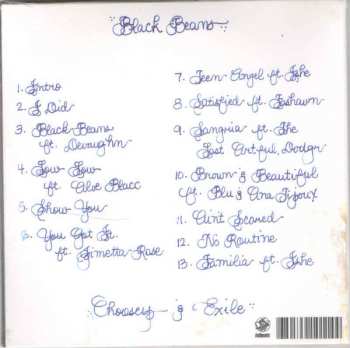 Black Beans
1. Intro
2. I Did
3. Black Beans
ft. Devaughn
4. Low Low
ft. Aloe Blacc
5. Show You
6. You Got It
ft. Jimetta Rose
7. Teen Angel ft. Ishe
8. Satisfied ft. Fashawn
9. Sangria ft. The
Lost Artful, Dodgr
10. Brown & Beautiful
ft. Blu & Ana Tijoux
11. Ain't Scared
12. No Routine
13. Familia ft. Ishe
Choosey & Exile